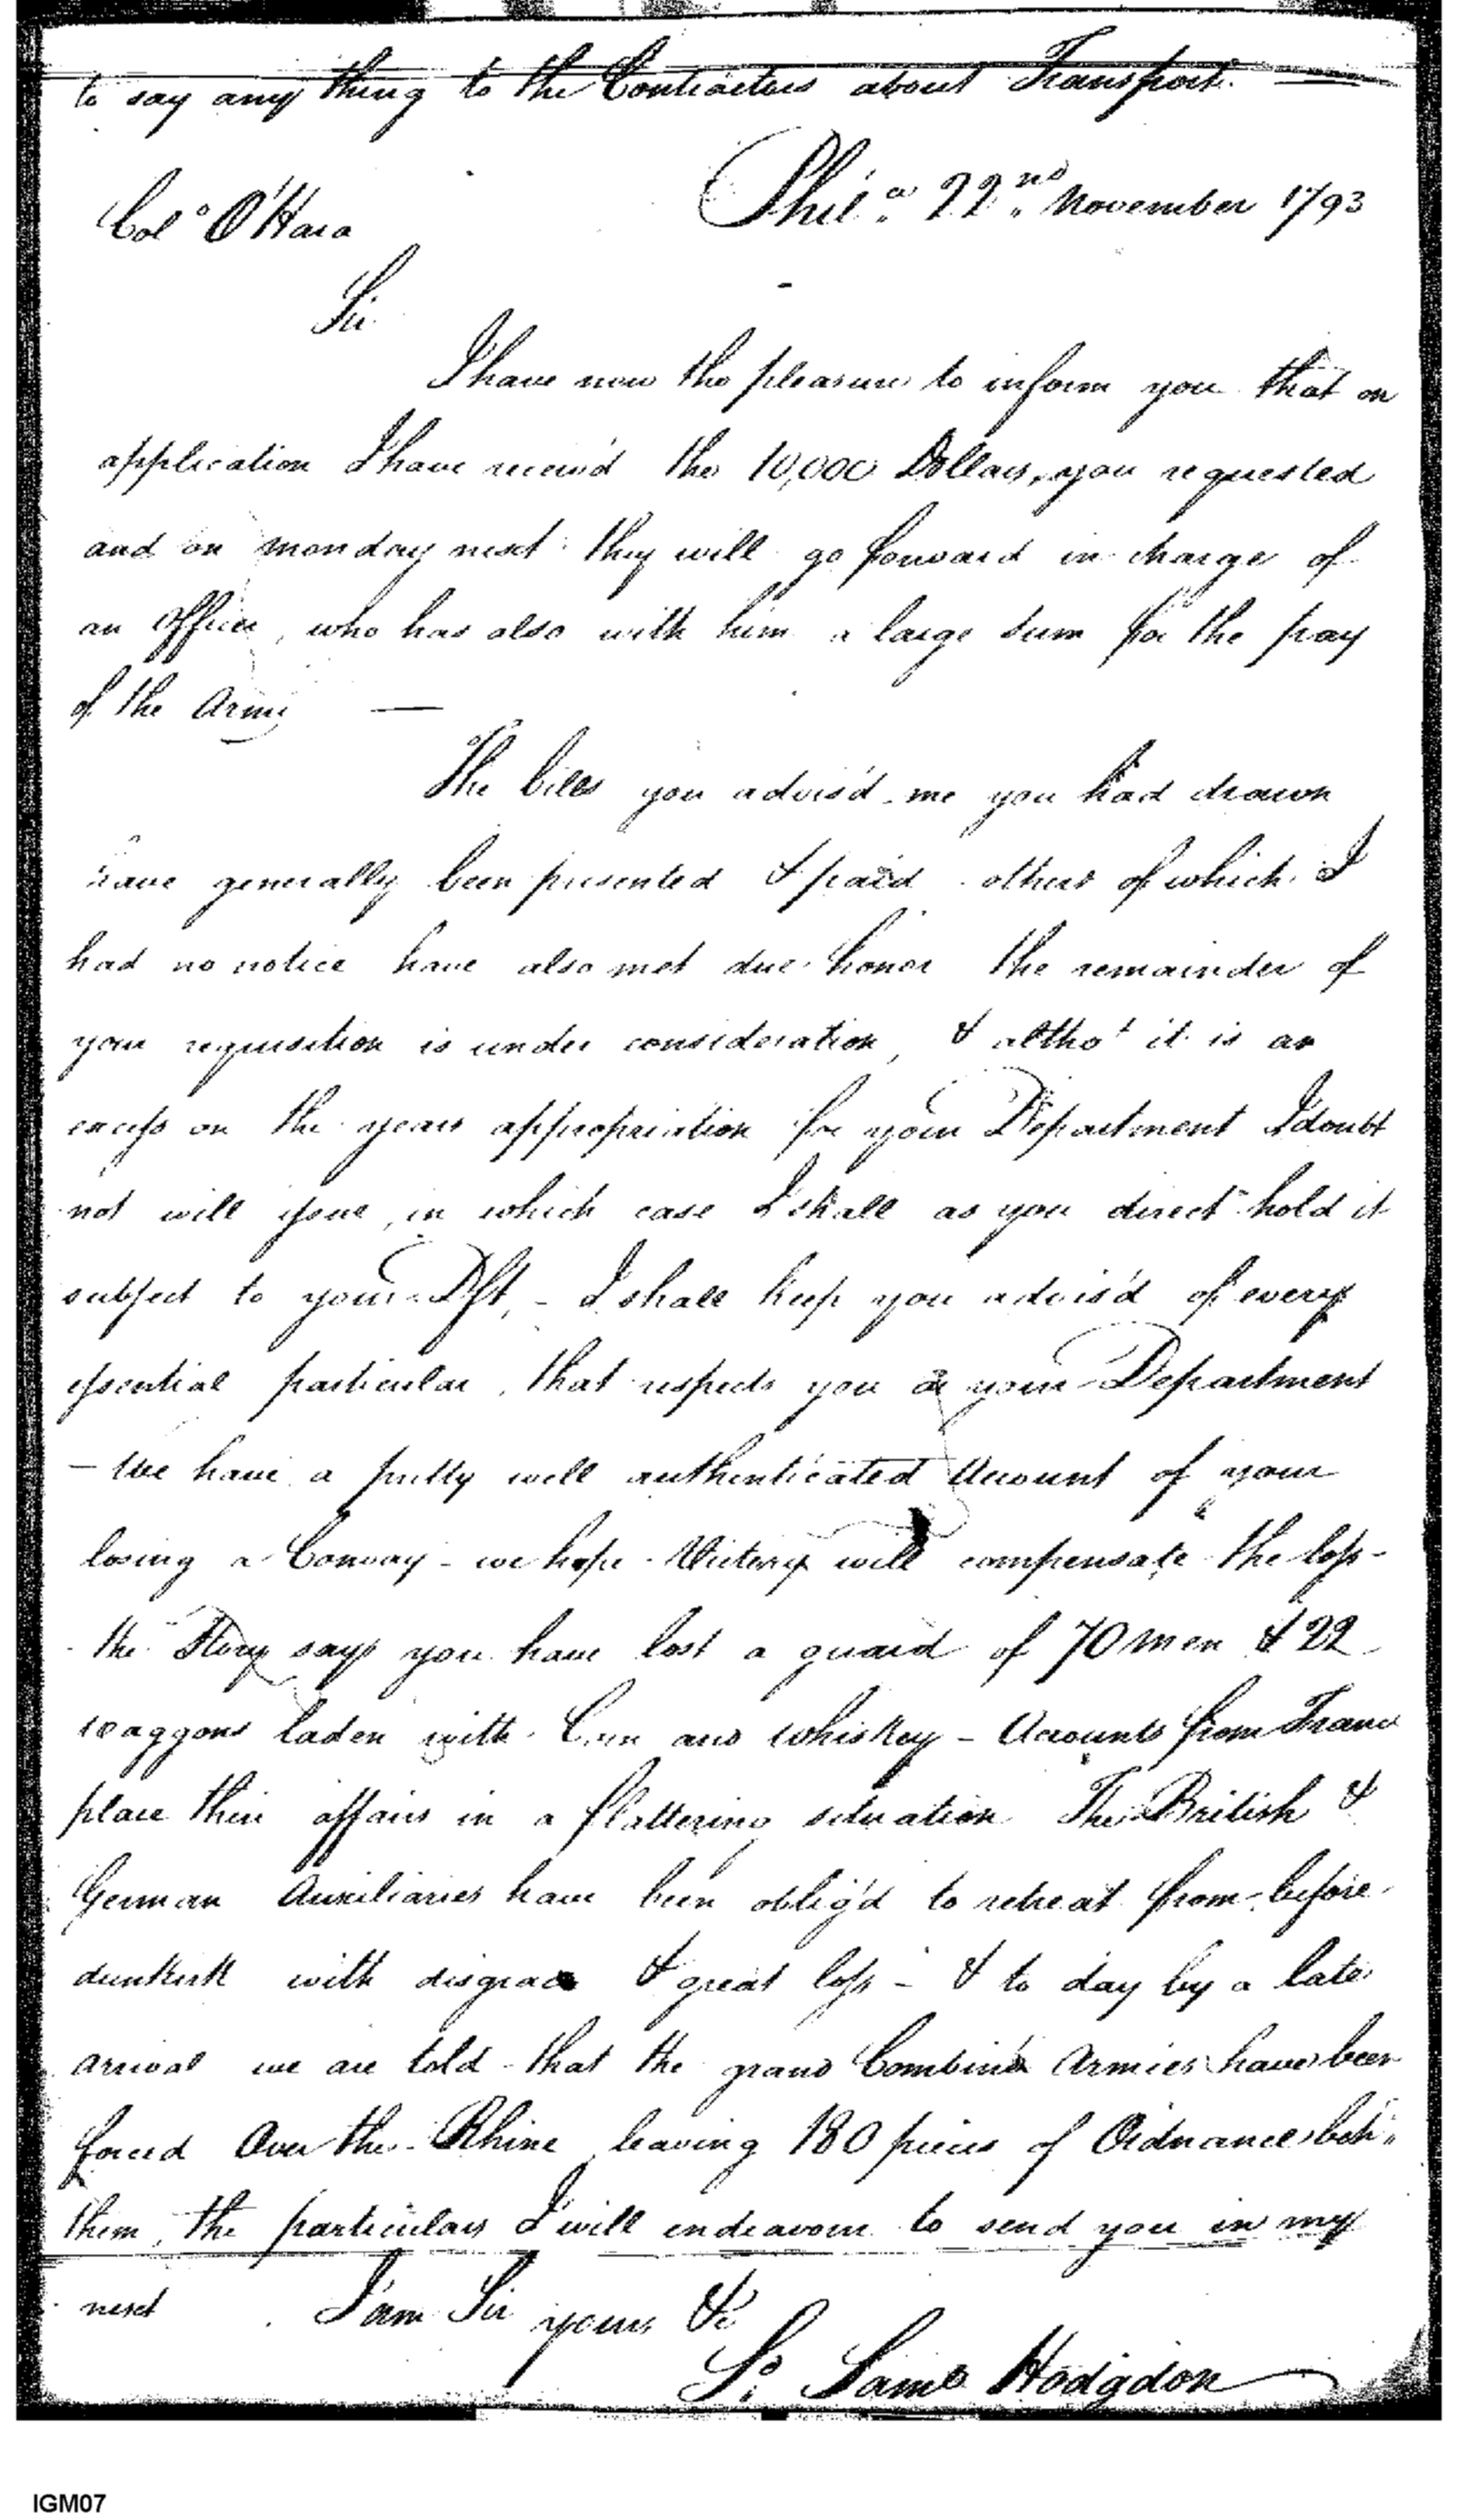 to say any thing to the Contractors about Transport.
Phila. 22nd. November 1793
Colo O'Hara
Sir
I have now the pleasure to inform you that on
application I have receiv'd the 10,000 Dollars, you requested
and on monday next they will go forward in charge of
an Officer, who has also with him a large sum for the pay
of the Army —
The bills you advis'd me you had drawn
have generally been presented & paid - others of which I
had no notice have also met due honor the remainder of
your requisition is under consideration, & altho' it is an
excess on the years appropriation for your Department I doubt
not will issue, in which case I shall as you direct hold it
subject to your Dft, - I shall keep you advis'd of every
essential particular, that respects you or your Department
- We have a pretty well authenticated Account of your
losing a Convoy - we hope Victory will compensate the loss -
the Story says you have lost a guard of 70 men & 22
waggons laden with Corn and Whiskey - Accounts from France
place their affairs in a flattering situation The British &
German Auxiliaries have been oblig'd to retreat from before
dunkirk with disgrace & great loss - & to day by a late
arrival we are told that the grand Combin'd Armies have been
forced Over the Rhine leaving 180 pieces of Ordnance beh:
them, the particulars I will endeavour to send you in my
next I am Sir yours &c
So. Saml Hodgdon
IGM07